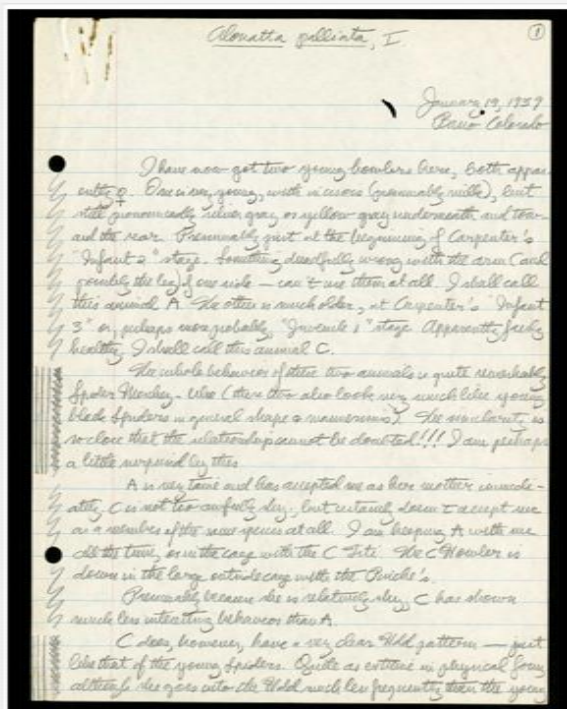 Alouatta palliata, I
1
January 19, 1959
Barro Colorado
I have now got two young howlers here, both appar-
ently ♀. One is very young, with incisors (presumably milk), but
still pronouncedly silver gray or yellow gray underneath and tow-
ard the rear. Presumably just at the beginning of Carpenter's
"Infant 2" stage. Something dreadfully wrong with the arm (and
possibly the leg) of one side — can't use them at all. I shall call
this animal A. The other is much older, at Carpenter's "Infant
3" or, perhaps more probably, "Juvenile 1" stage. Apparently fairly
healthy. I shall call this animal C.
The whole behavior of these two animals is quite remarkably
Spider Monkey-like (these two also look very much like young
black Spiders in general shape & mannerisms). The similarity is
so close that the relationship cannot be doubted!!! I am perhaps
a little surprised by this
A is very tame and has accepted me as her mother immedi-
ately. C is not too awfully shy, but certainly doesn't accept me
as a member of the same species at all. I am keeping A with me
all the time, or in the cage with the C Titi. The C Howler is
down in the large outside cage with the Pinche's.
Presumably because she is relatively shy, C has shown
much less interesting behavior than A.
C does, however, have a very clear Wld pattern — just
like that of the young Spiders. Quite as extreme in physical form,
although she goes into the Wld much less frequently than the young